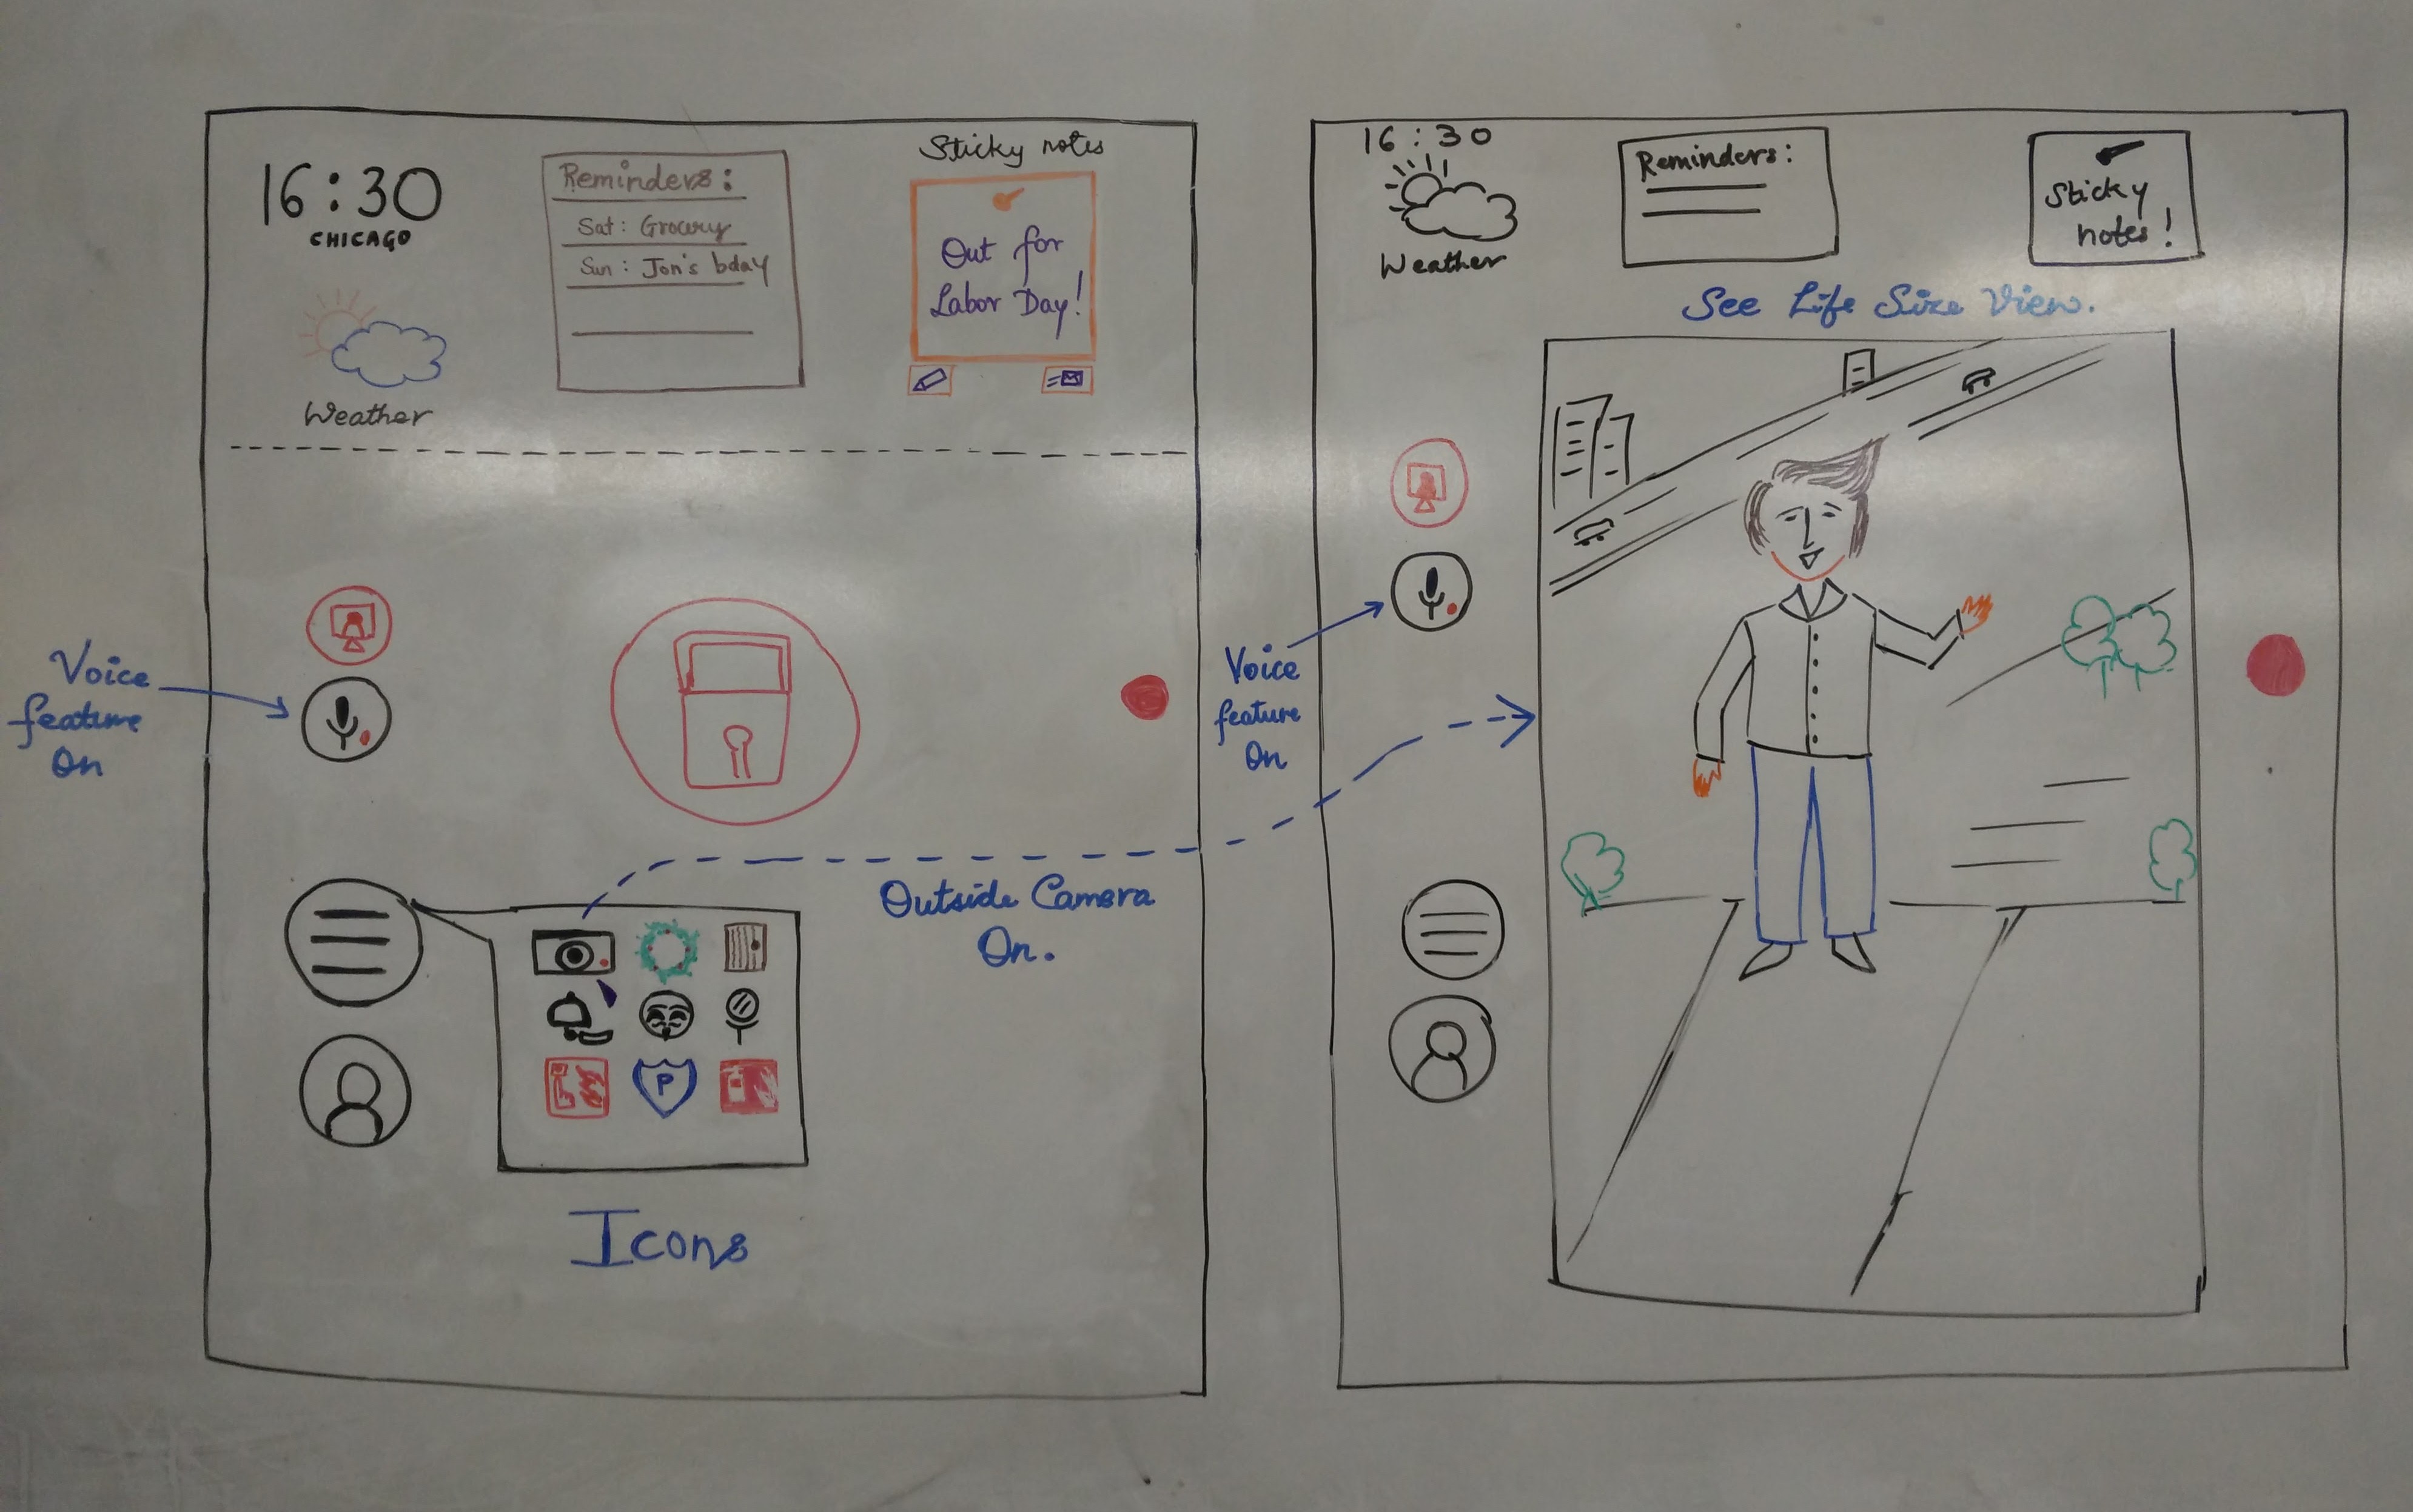 16:30
CHICAGO
Weather
Reminders:
Sat: Grocery
Sun: Jon's bday
Sticky notes
Out for
Labor Day!
Voice
feature
On
Outside Camera
On.
P
Icons
16:30
Weather
Reminders:
Sticky
notes!
See Life Size View.
Voice
feature
On